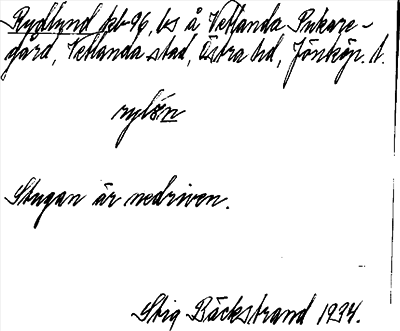 Rydlund feb 96, bs å Vetlanda Pukare-
gård, Vetlanda stad, Östra hd, Jönköp. l.
rylún
Stugan är nedriven.
Stig Bäckstrand 1934.